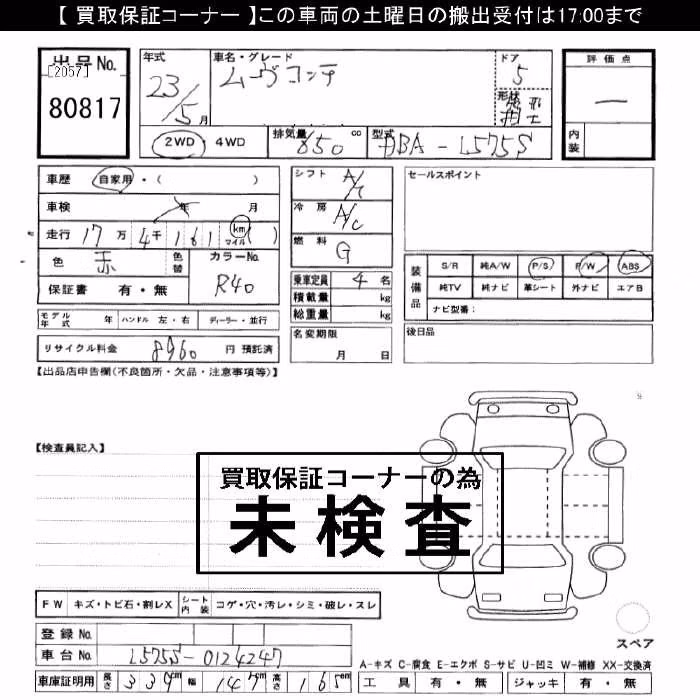 【 買取保証コーナー 】この車両の土曜日の搬出受付は17:00まで
出品No.
[2057]
80817
年式 車名・グレード ドア
23/5月 ムーヴコンテ 5
形状
2WD ・ 4WD 排気量 650 cc 型式 DBA-L575S
評価点
一
内装
車歴 自家用・( )
車検 年 月
走行 17万 4千 161 km マイル ( )
色 赤 色替 カラーNo. R40
保証書 有・無
モデル年式 年 ハンドル 左・右 ディーラー・並行
リサイクル料金 8960 円 預託済
シフト A/T
冷房 A/C
燃料 G
乗車定員 4 名
積載量 kg
総重量 kg
名変期限
月 日
セールスポイント
装備品 S/R 純A/W P/S P/W ABS
純TV 純ナビ 革シート 外ナビ エアB
ナビ型番:
後日品
【出品店申告欄(不良箇所・欠品・注意事項等)】
【検査員記入】
買取保証コーナーの為
未検査
FW キズ・トビ石・割レX シート内装 コゲ・穴・汚レ・シミ・破レ・スレ
登録No.
車台No. L575S-0124247
車庫証明用 長さ 339cm 幅 147cm 高さ 165cm
スペア
A-キズ C-腐食 E-エクボ S-サビ U-凹ミ W-補修 XX-交換済
工具 有・無 ジャッキ 有・無